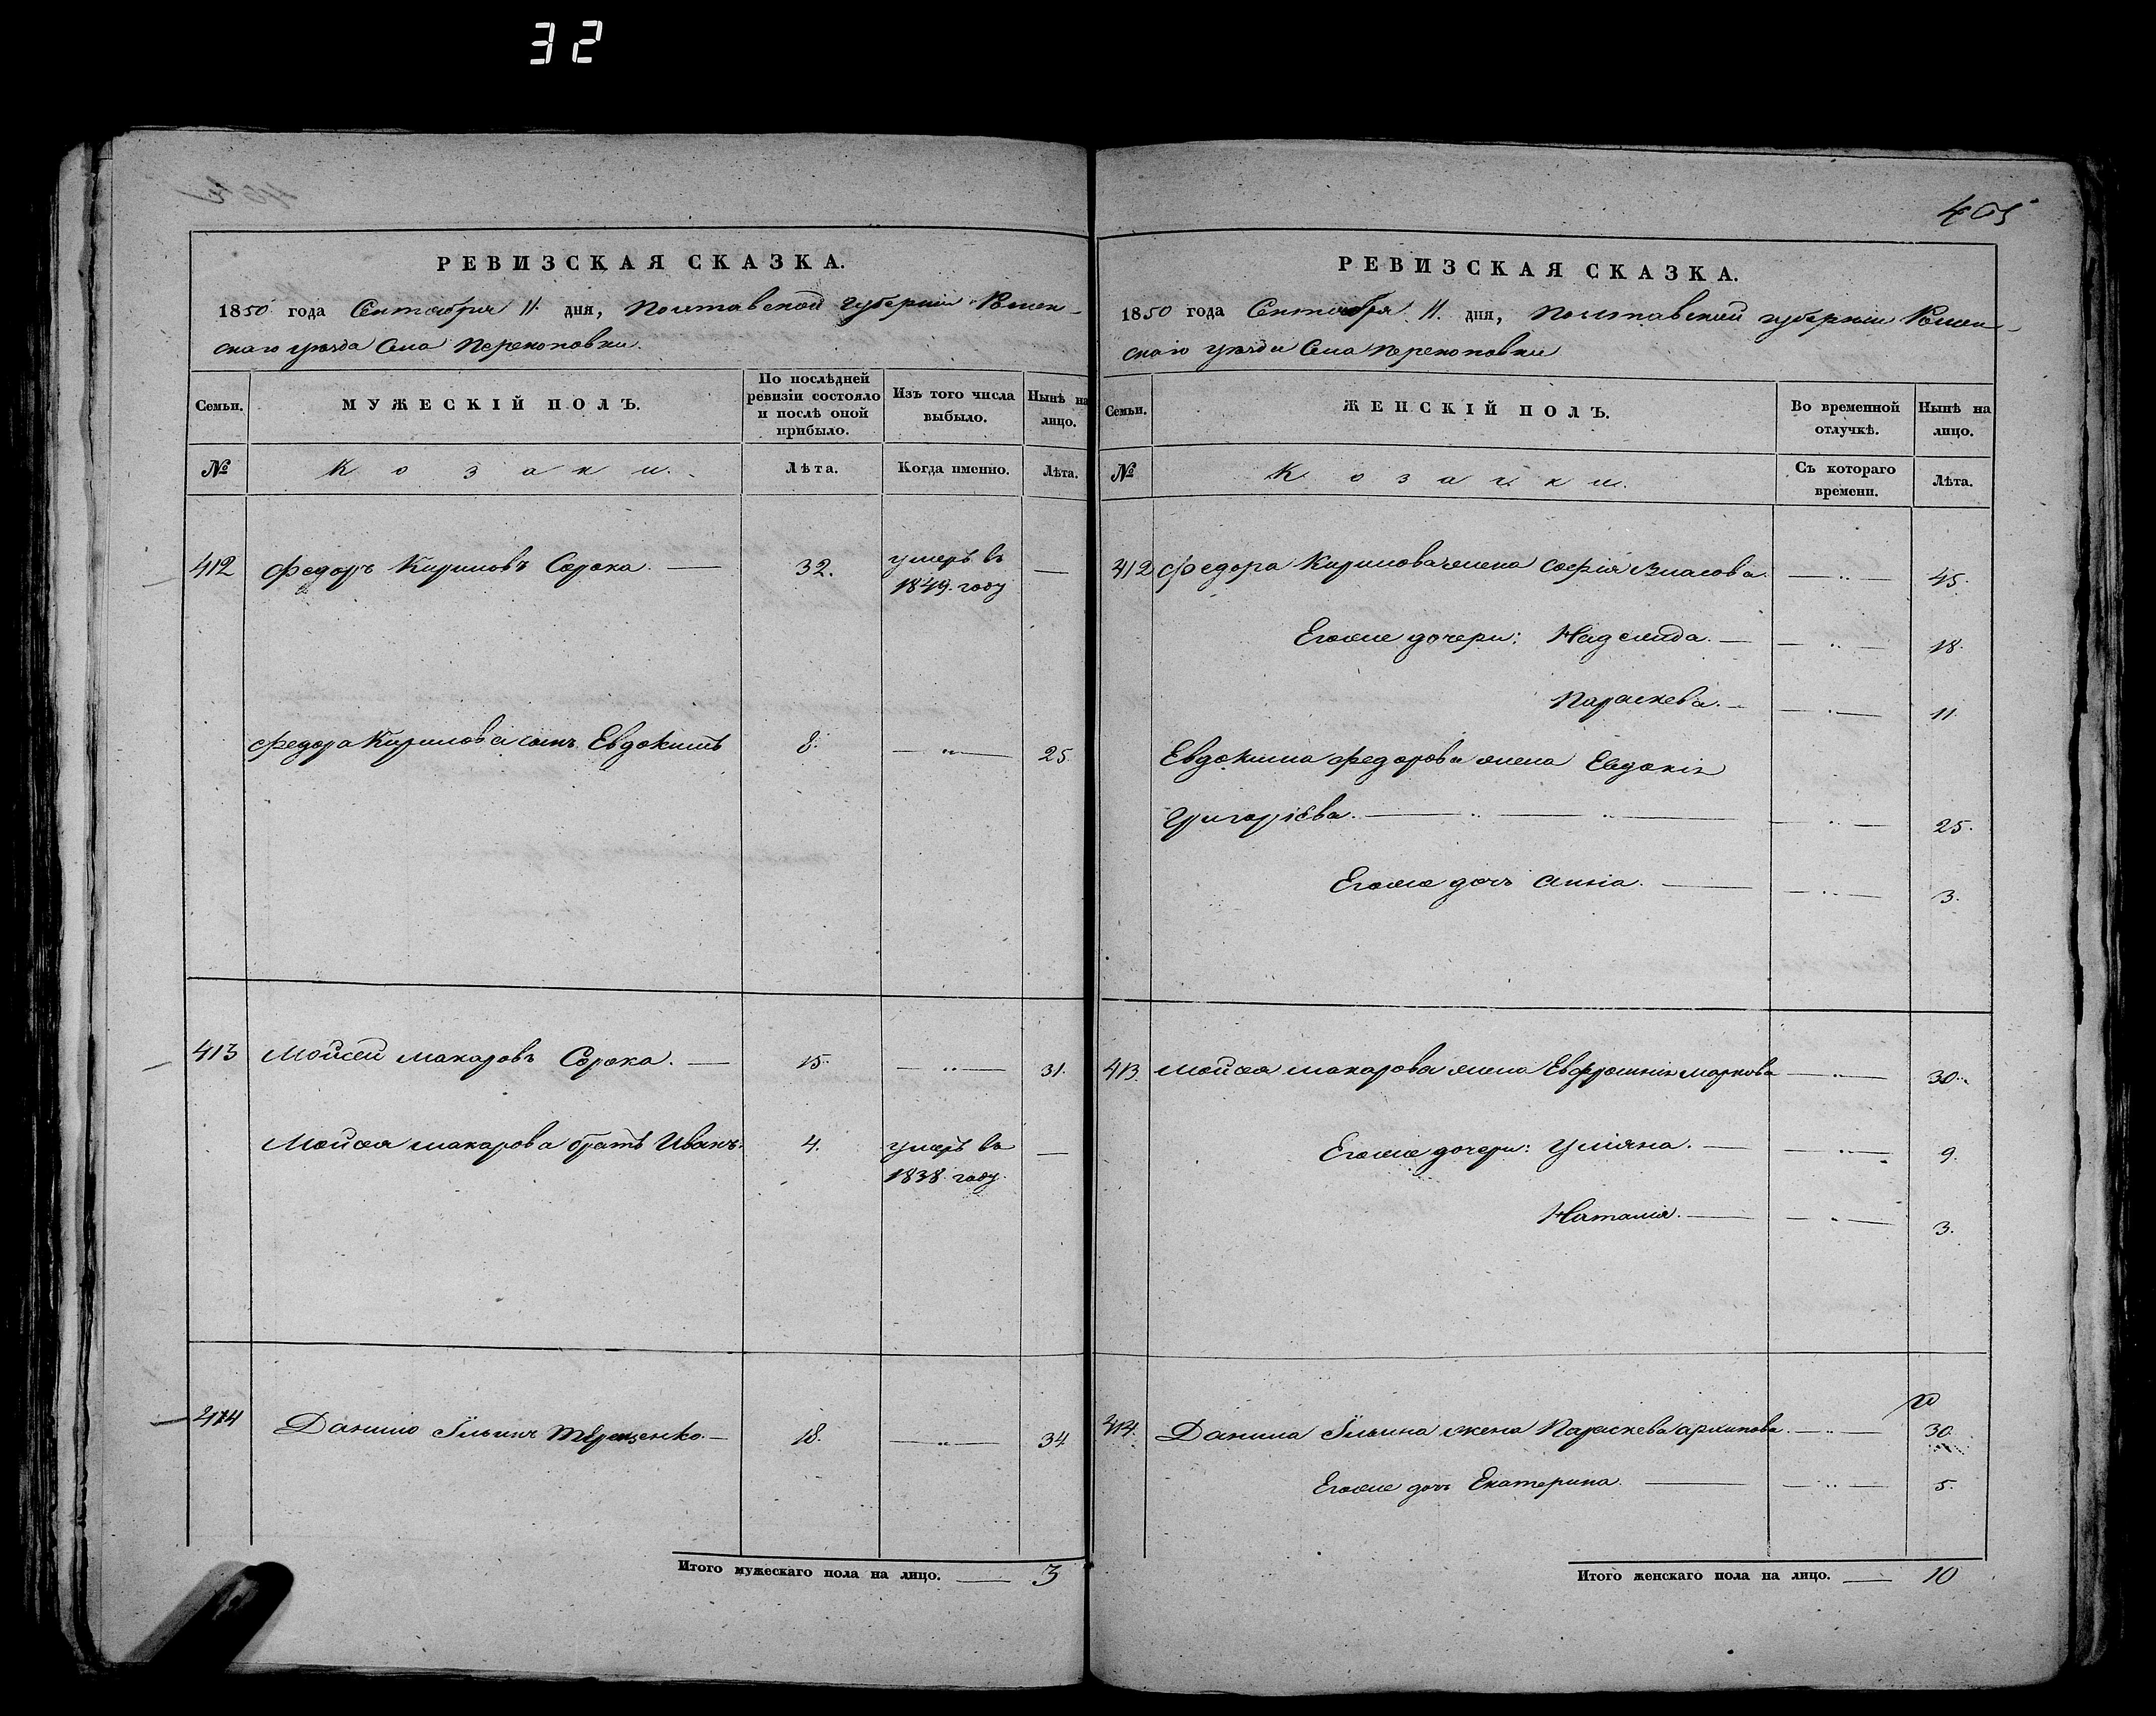 32
405
РЕВИЗСКАЯ СКАЗКА.
1850 года Сентября 11. дня, Полтавской губернии Ромен-
скаго уезда Села Перекоповки.
Семьи.
МУЖЕСКІЙ ПОЛЪ.
По послѣдней
ревизіи состояло
и послѣ оной
прибыло.
Изъ того числа
выбыло.
Нынѣ на
лицо.
№
Козаки.
Лѣта.
Когда именно.
Лѣта.
412 Федоръ Кириловъ Сорока. — 32. умеръ въ —
1849. году
Федора Кирилова сынъ Евдокимъ 8. — „ — 25
413 Мойсей Макаровъ Сорока. — 15. — „ — 31.
Мойсея Макарова братъ Иванъ. 4. умеръ въ —
1838. году.
414 Данило Ильинъ Терещенко. — 18. — „ — 34
Итого мужескаго пола на лицо. — 3
РЕВИЗСКАЯ СКАЗКА.
1850 года Сентября 11. дня, Полтавской губернии Ромен-
скаго уезда Села Перекоповки
Семьи.
ЖЕНСКІЙ ПОЛЪ.
Во временной
отлучкѣ.
Нынѣ на
лицо.
№
Козачки.
Съ котораго
времени.
Лѣта.
412 Федора Кирилова жена Софія Власова. — „ — 45.
Егоже дочери: Надежда. — — „ — 18.
Параскева. — — „ — 11.
Евдокима Федорова жена Евдокія
Григоріева. — „ — „ — — „ — 25.
Егоже дочь Анна. — — „ — 3.
413. Мойсея Макарова жена Евфросинія Маркова — „ — 30.
Егоже дочери: Уліяна. — — „ — 9.
Наталія. — — „ — 3.
414. Данила Ильина жена Параскева Архипова. — „ — 30.
Егоже дочь Екатерина. — — „ — 5.
Итого женскаго пола на лицо. — 10